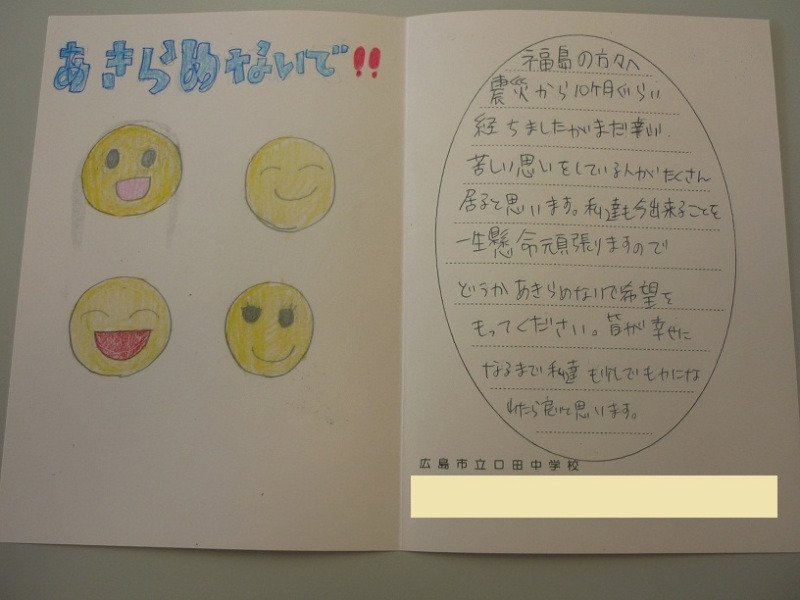 あきらめないで!!
福島の方々へ
震災から10ヶ月ぐらい
経ちましたがまだ辛い、
苦しい思いをしている人がたくさん
居ると思います。私達も今出来ることを
一生懸命頑張りますので
どうかあきらめないで希望を
もってください。皆が幸せに
なるまで私達も少しでも力にな
れたら良いと思います。
広島市立口田中学校